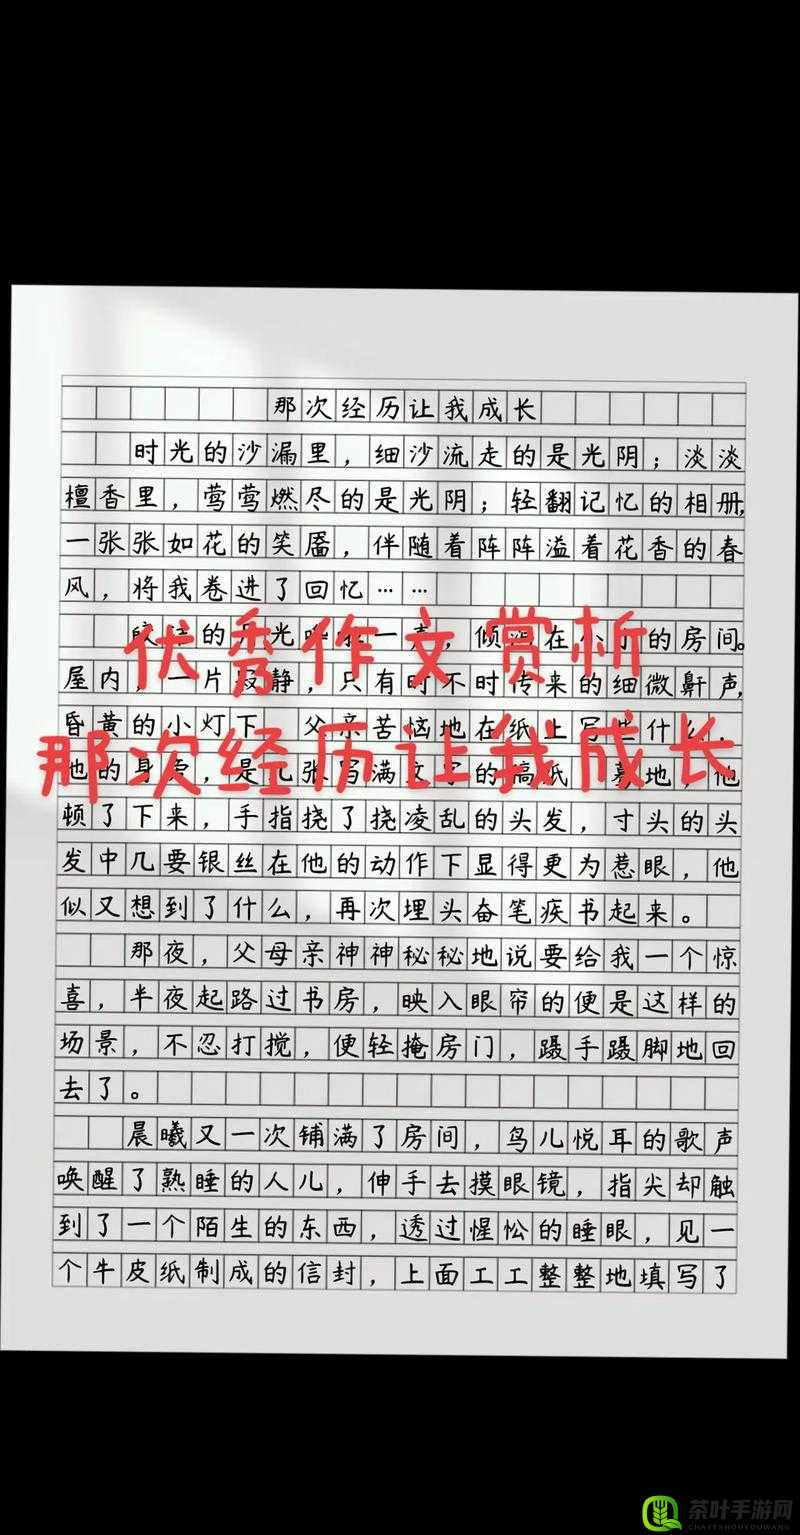 那次经历让我成长
时光的沙漏里，细沙流走的是光阴；淡淡
檀香里，莺莺燃尽的是光阴；轻翻记忆的相册，
一张张如花的笑靥，伴随着阵阵溢着花香的春
风，将我卷进了回忆……
的 光 一 在小 的房间。
优秀作文赏析
屋内，一片寂静，只有时不时传来的细微鼾声，
昏黄的小灯下 父亲苦恼地在纸上写 什么，
那次经历让我成长
他的身旁，是几张写满文字的稿纸 蓦地，他
顿了下来，手指挠了挠凌乱的头发，寸头的头
发中几要银丝在他的动作下显得更为惹眼，他
似又想到了什么，再次埋头奋笔疾书起来。
那夜，父母亲神神秘秘地说要给我一个惊
喜，半夜起路过书房，映入眼帘的便是这样的
场景，不忍打搅，便轻掩房门，蹑手蹑脚地回
去了。
晨曦又一次铺满了房间，鸟儿悦耳的歌声
唤醒了熟睡的人儿，伸手去摸眼镜，指尖却触
到了一个陌生的东西，透过惺忪的睡眼，见一
个牛皮纸制成的信封，上面工工整整地填写了
茶叶手游网
CHAYESHOUYOUWANG